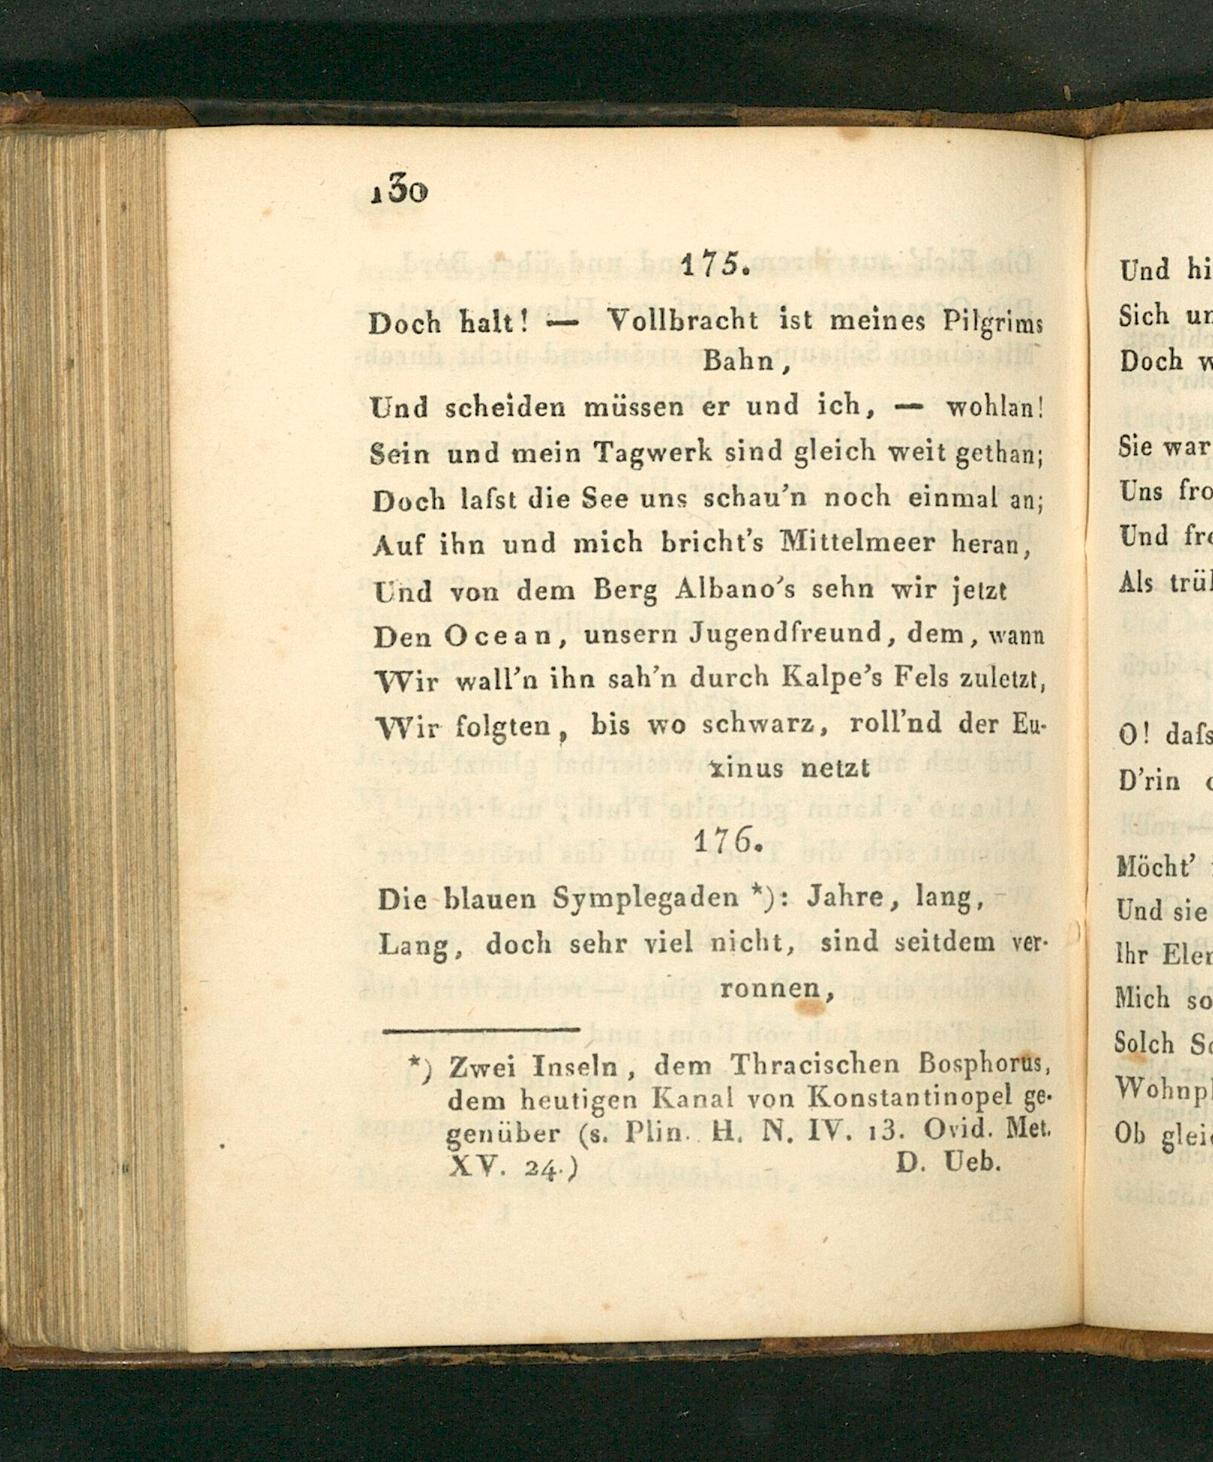 130
175.
Doch halt! — Vollbracht ist meines Pilgrims
Bahn,
Und scheiden müssen er und ich, — wohlan!
Sein und mein Tagwerk sind gleich weit gethan;
Doch laſst die See uns schau'n noch einmal an;
Auf ihn und mich bricht's Mittelmeer heran,
Und von dem Berg Albano's sehn wir jetzt
Den Ocean, unsern Jugendfreund, dem, wann
Wir wall'n ihn sah'n durch Kalpe's Fels zuletzt,
Wir folgten, bis wo schwarz, roll'nd der Eu-
xinus netzt
176.
Die blauen Symplegaden *): Jahre, lang,
Lang, doch sehr viel nicht, sind seitdem ver-
ronnen,
*) Zwei Inseln, dem Thracischen Bosphorus,
dem heutigen Kanal von Konstantinopel ge-
genüber (s. Plin. H. N. IV. 13. Ovid. Met.
XV. 24.) D. Ueb.
Und hi
Sich un
Doch w
Sie war
Uns fro
Und fre
Als trü
O! daſs
D'rin
Möcht'
Und sie
Ihr Eler
Mich so
Solch Sc
Wohnpl
Ob glei